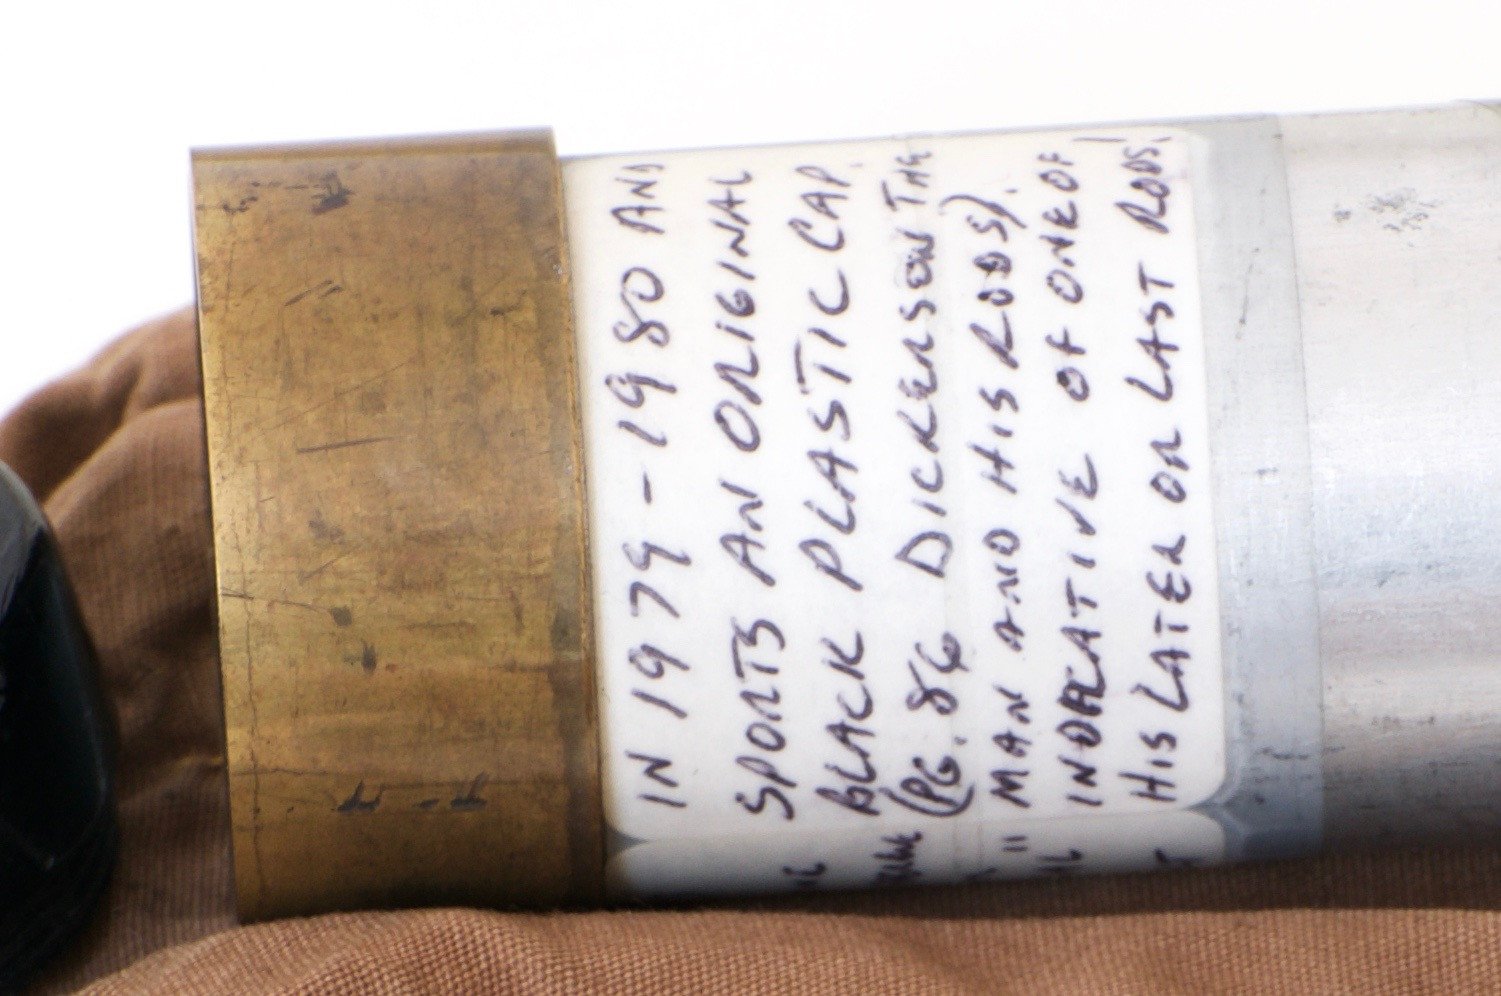 IN 1979-1980 AND
SPORTS AN ORIGINAL
BLACK PLASTIC CAP.
(PG. 86 DICKERSON THE
MAN AND HIS RODS).
INDICATIVE OF ONE OF
HIS LATER OR LAST RODS.
"